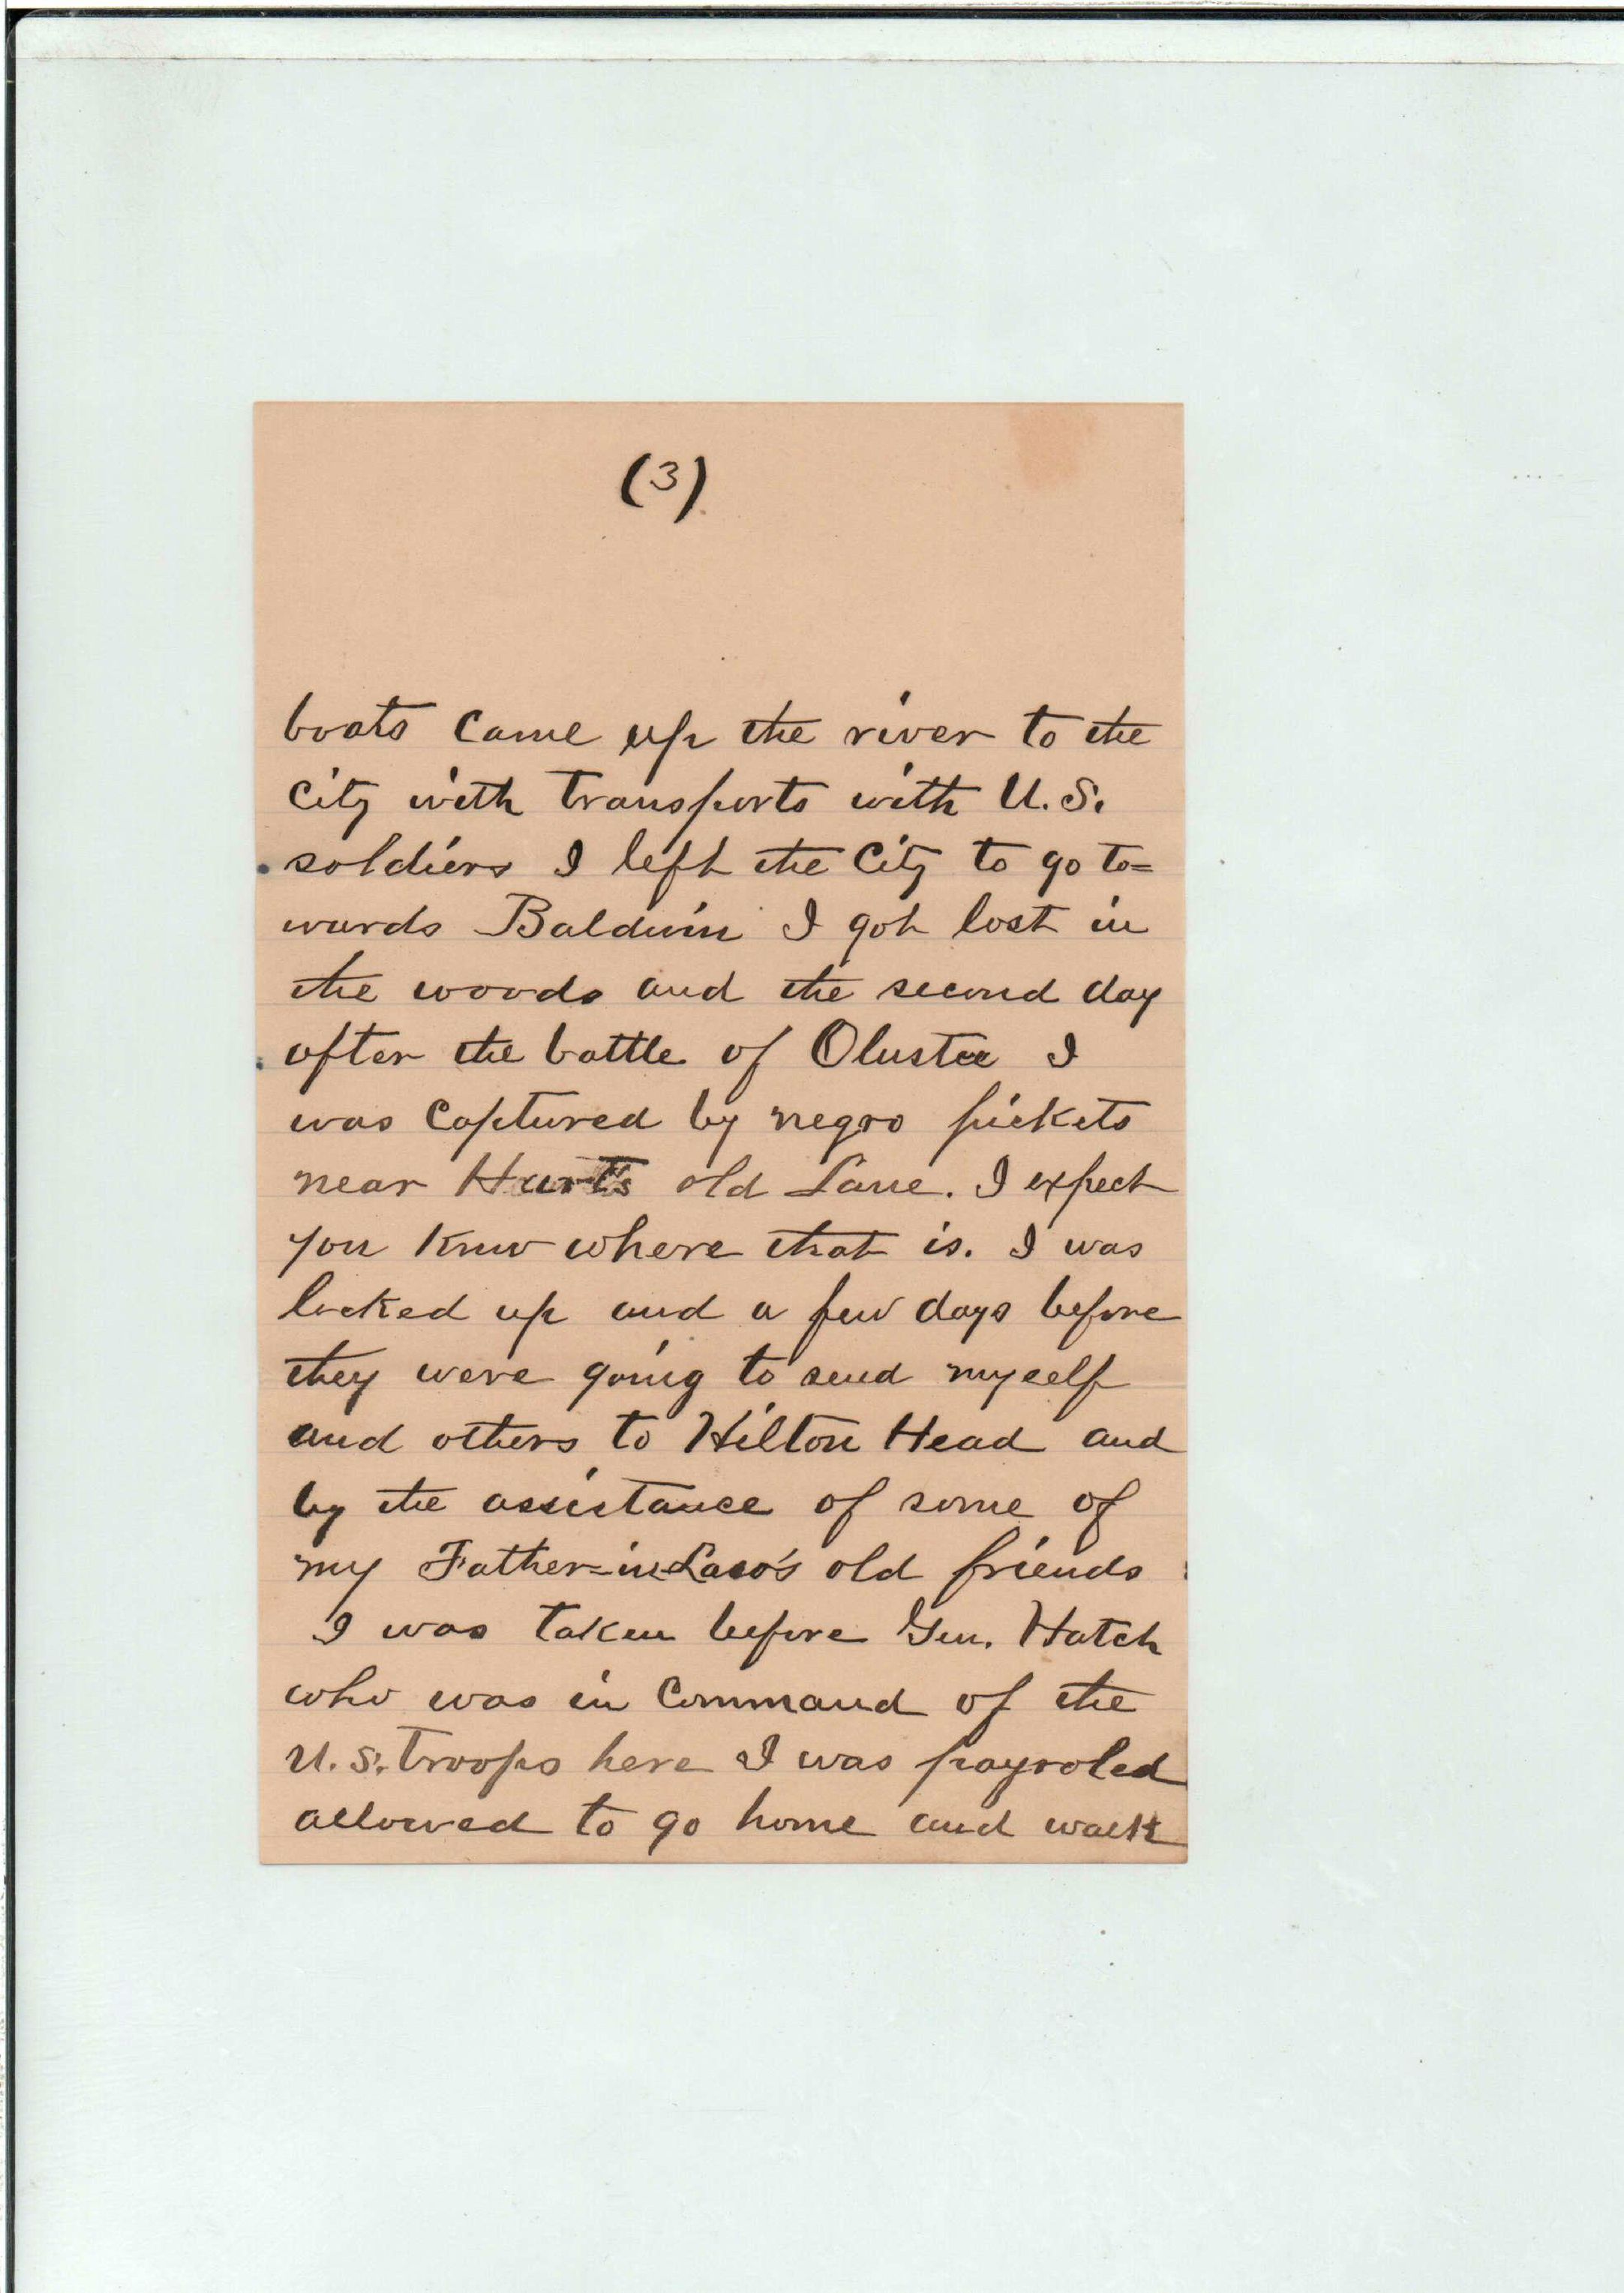 (3)
boats came up the river to the
City with transports with U.S.
soldiers I left the City to go to=
wards Baldwin I got lost in
the woods and the second day
after the battle of Olustee I
was captured by negro pickets
near Hart's old Lane. I expect
you know where that is. I was
locked up and a few days before
they were going to send myself
and others to Hilton Head and
by the assistance of some of
my Father-in-Law's old friends
I was taken before Gen. Hatch
who was in Command of the
U.S. troops here I was payroled
allowed to go home and walk